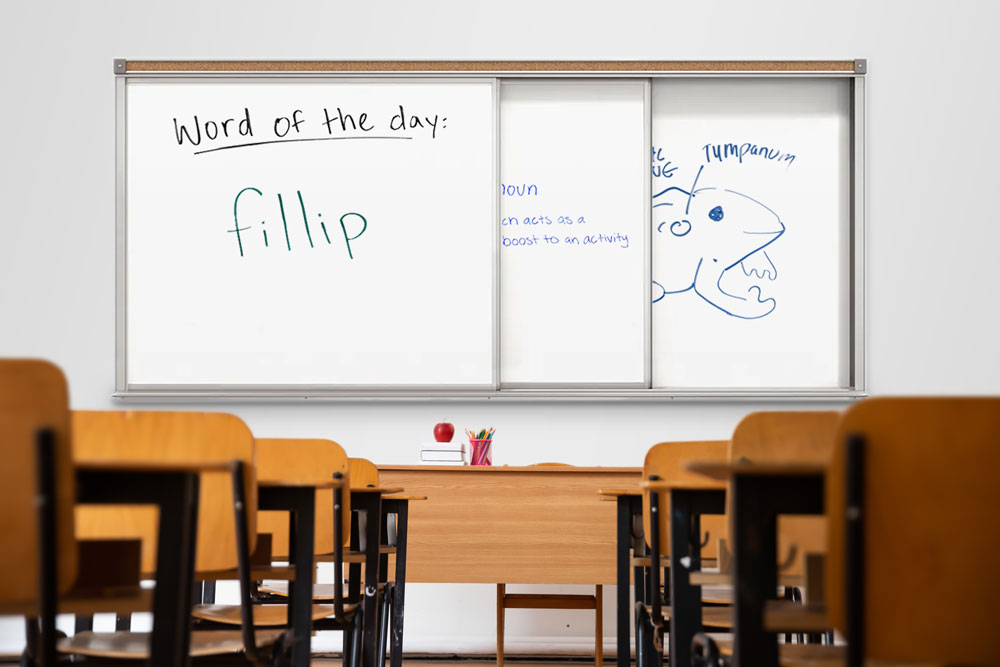 Word of the day:
fillip
noun
ch acts as a
boost to an activity
Tympanum